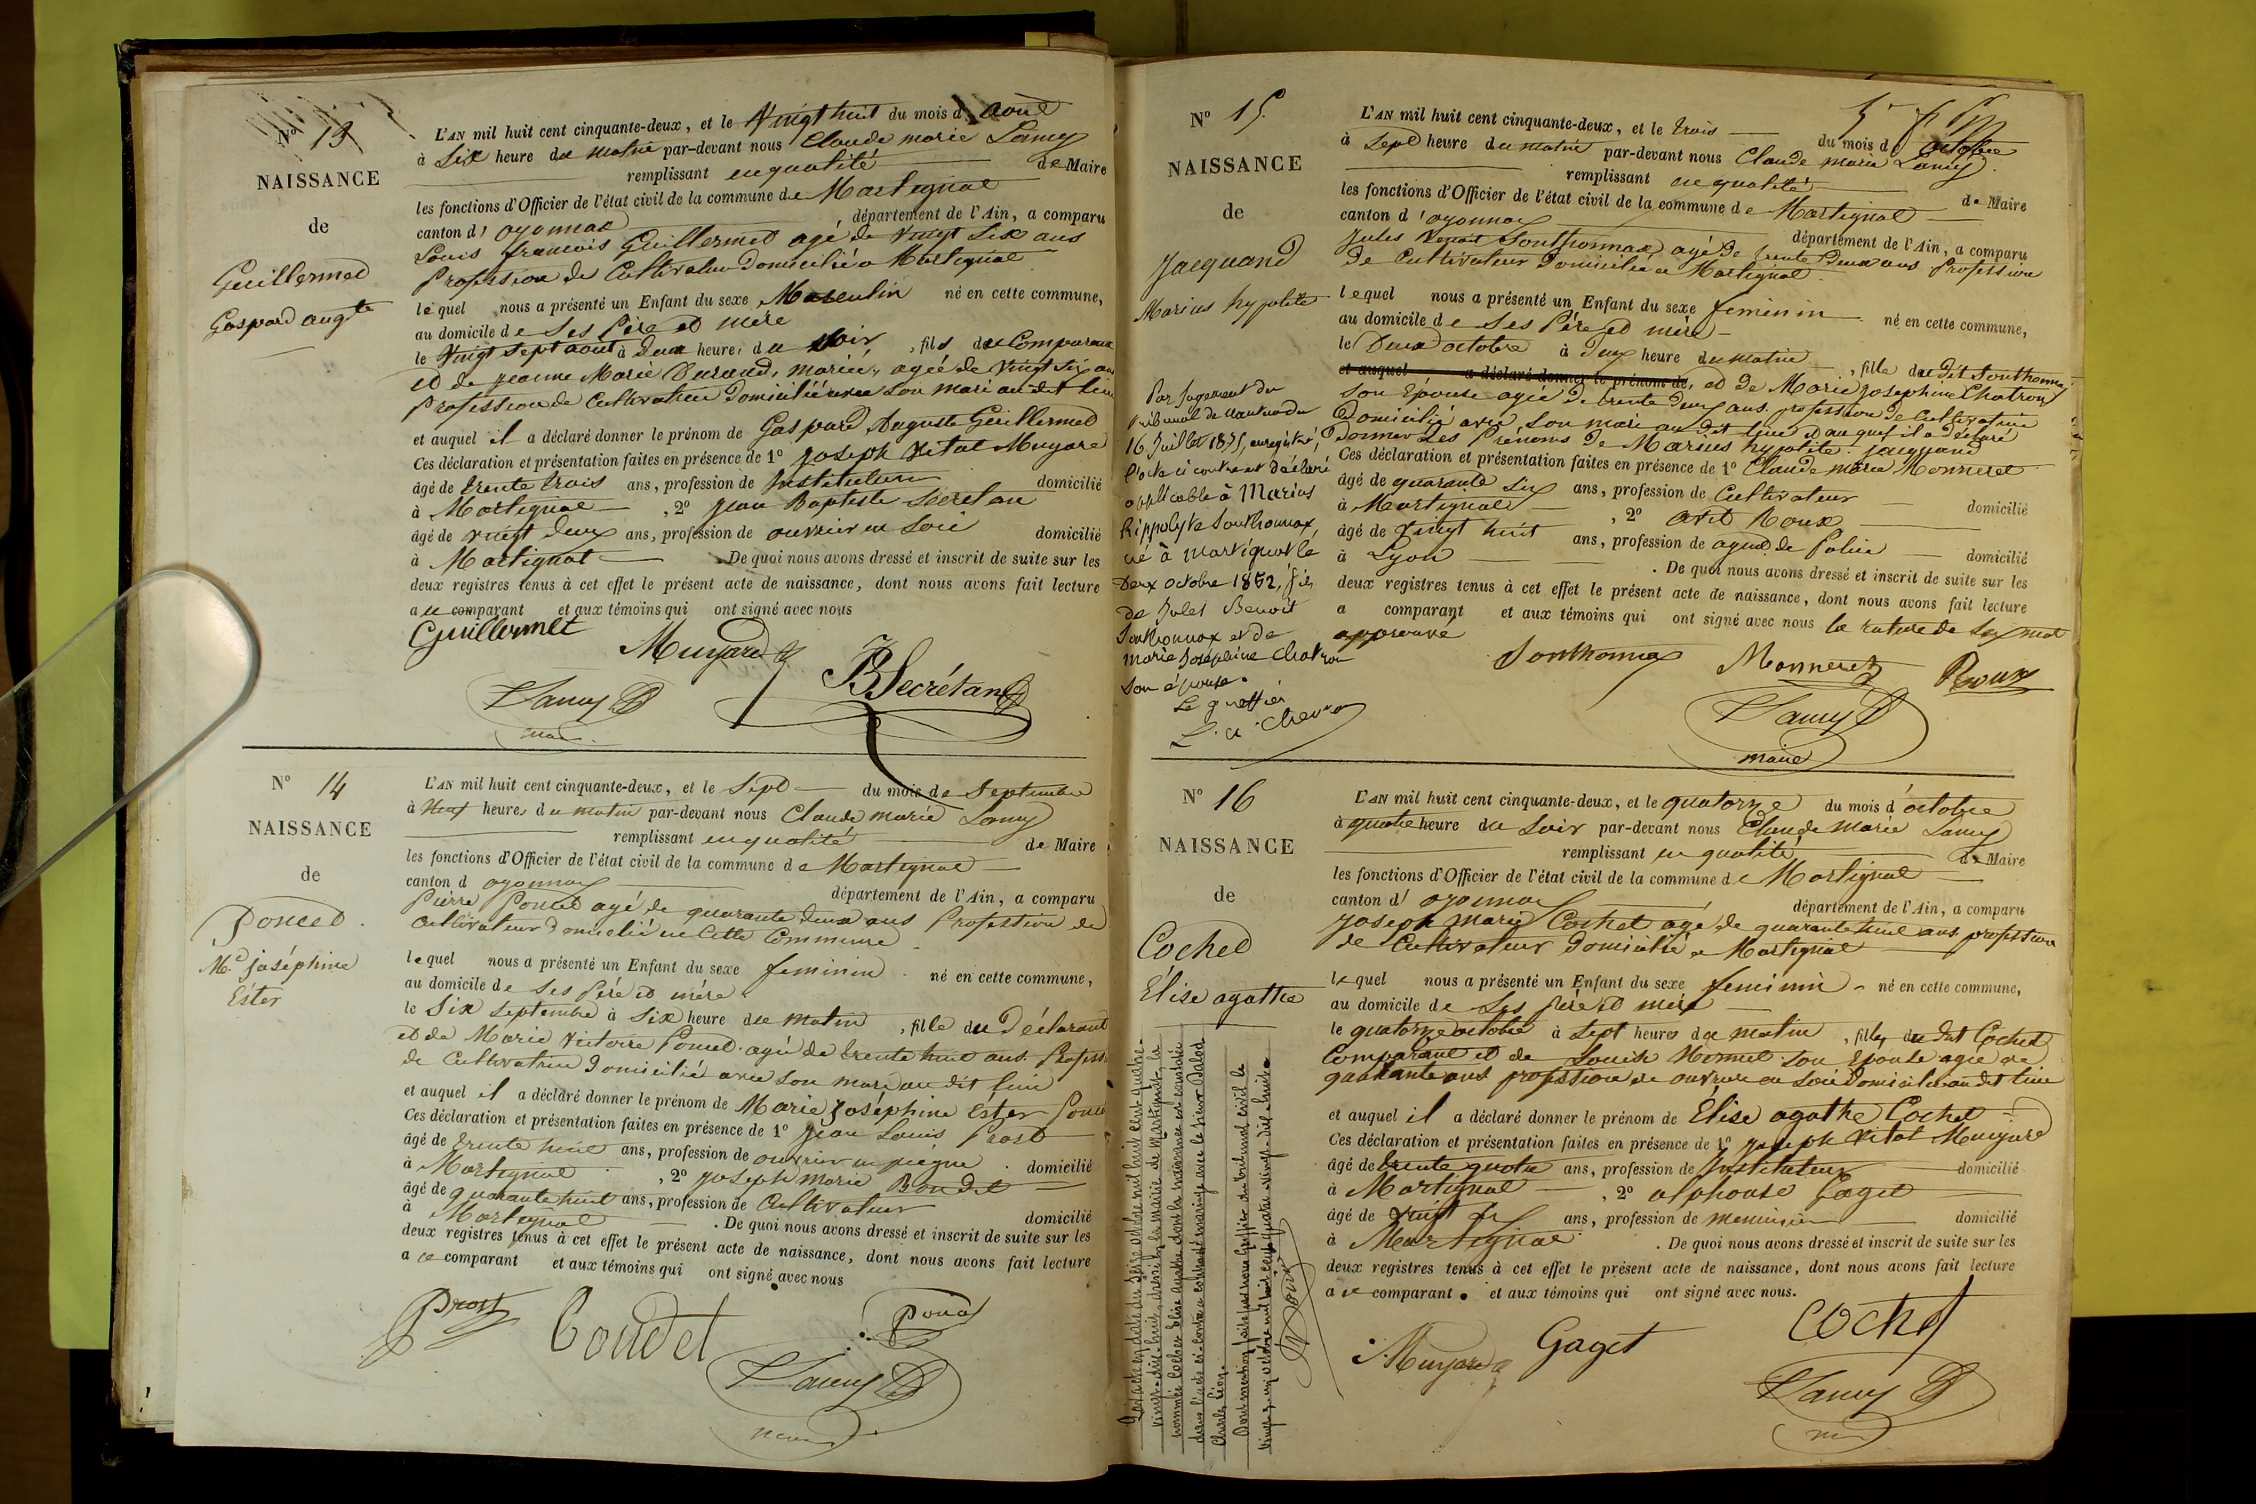 Nº 13
NAISSANCE
de
Guillermet
Gaspard augte
L'AN mil huit cent cinquante-deux, et le Vingt huit du mois d'Aout
à Six heure du matin par-devant nous Claude marie Lamy
remplissant en qualité de Maire
les fonctions d'Officier de l'état civil de la commune de Martignat
canton d'oyonnax , département de l'Ain, a comparu
Louis francois Guillermet agé de Vingt Six ans
Profession de Cultivateur Domicilié a Martignat
lequel nous a présenté un Enfant du sexe Masculin né en cette commune,
au domicile de Ses Père et mère
le Vingt Sept aout à Deux heure, du Soir , fils du Comparant
et de jeanne Marie Durand, mariée, agée de Vingt Six ans
Profession de Cultivatrice Domiciliée avec Son mari au dit lieu
et auquel il a déclaré donner le prénom de Gaspard Auguste Guillermet
Ces déclaration et présentation faites en présence de 1º joseph Vital Muyard
âgé de trente trois ans, profession de Instituteur domicilié
à Martignat , 2º jean Baptiste Secretan
âgé de vingt deux ans, profession de ouvrier en Soie domicilié
à Martignat . De quoi nous avons dressé et inscrit de suite sur les
deux registres tenus à cet effet le présent acte de naissance, dont nous avons fait lecture
a ce comparant et aux témoins qui ont signé avec nous
Guillermet
Muyard
JB Secrétan
Lamy
maire
Nº 14
NAISSANCE
de
Poncet
Me joséphine
Ester
L'AN mil huit cent cinquante-deux, et le Sept du mois de Septembre
à Neuf heures du matin par-devant nous Claude marie Lamy
remplissant en qualité de Maire
les fonctions d'Officier de l'état civil de la commune de Martignat
canton d oyonnax département de l'Ain, a comparu
Pierre Poncet agé de quarante deux ans Profession de
Cultivateur Domicilié en Cette Commune
lequel nous a présenté un Enfant du sexe feminin né en cette commune,
au domicile de Ses Péré et mére
le Six Septembre à Six heure du matin , fille du Déclarant
et de Marie Victoire Poncet agé de trente huit ans. Profess.
de Cultivatrice Domicilié avec Son mari au dit lieu
et auquel il a déclaré donner le prénom de Marie joséphine Ester Poncet
Ces déclaration et présentation faites en présence de 1º jean Louis Prost
âgé de trente huit ans, profession de ouvrier en peigne domicilié
à Martignat , 2º joseph marie Bondet
âgé de quarante huit ans, profession de Cultivateur domicilié
à Martignat . De quoi nous avons dressé et inscrit de suite sur les
deux registres tenus à cet effet le présent acte de naissance, dont nous avons fait lecture
a ce comparant et aux témoins qui ont signé avec nous
Prost
Bondet
Poncet
Lamy
maire
Nº 15
NAISSANCE
de
Jacquand
Marius hypolite
Par Jugement du
tribunal de Nantua du
16 Juillet 1875, enregistré,
l'acte ci contre est déclaré
applicable à Marius
hippolyte Sonthonnax,
né à Martignat le
Deux octobre 1852, fils
de Jules Benoit
Sonthonnax et de
marie Joséphine Chatron
son épouse.
Le greffier
L'AN mil huit cent cinquante-deux, et le trois du mois d'octobre
à Sept heure du matin par-devant nous Claude marie Lamy
remplissant en qualité de Maire
les fonctions d'Officier de l'état civil de la commune de Martignat
canton d'oyonnax département de l'Ain, a comparu
Jules Benoit Sonthonnax agé de trente Deux ans Profession
de Cultivateur Domicilié a Martignat
lequel nous a présenté un Enfant du sexe feminin né en cette commune,
au domicile de Ses Pére et mére
le Deux octobre à Deux heure du matin , fille du dit Sonthonnax
et auquel a déclaré donner le prénom de, et de Marie josephine Chatron
Son Epouse agée de trente deux ans. profession de Cultivatrice
Domicilié avec Son mari au dit lieu et auquel il a déclaré
donner Les Prénoms de Marius hypolite jacquand
Ces déclaration et présentation faites en présence de 1º Claude marie Monneret
âgé de quarante Six ans, profession de Cultivateur domicilié
à Martignat , 2º Roux
âgé de Vingt huit ans, profession de agent de Police domicilié
à Lyon . De quoi nous avons dressé et inscrit de suite sur les
deux registres tenus à cet effet le présent acte de naissance, dont nous avons fait lecture
a comparant et aux témoins qui ont signé avec nous la rature de Six mot
approuvé
Sonthonnax
Monneret
Roux
Lamy
maire
Nº 16
NAISSANCE
de
Cochet
Elise agathe
L'AN mil huit cent cinquante-deux, et le quatorze du mois d'octobre
à quatre heure du Soir par-devant nous Claude Marie Lamy
remplissant en qualité de Maire
les fonctions d'Officier de l'état civil de la commune de Martignat
canton d'oyonnax département de l'Ain, a comparu
joseph marie Cochet agé de quarante huit ans profession
de Cultivateur Domicilié a Martignat
lequel nous a présenté un Enfant du sexe feminin né en cette commune,
au domicile de Ses pére et mére
le quatorze octobre à Sept heures du matin , fille, du dit Cochet
Comparant et de Louise Mermet Son Epouse agée de
quarante ans profession de ouvriere en Soie Domiciliée au dit lieu
et auquel il a déclaré donner le prénom de Elise agathe Cochet
Ces déclaration et présentation faites en présence de 1º joseph Vital Muyard
âgé de trente quatre ans, profession de Instituteur domicilié
à Martignat , 2º alphonse Gaget
âgé de Vingt ans, profession de menuisier domicilié
à Martignat . De quoi nous avons dressé et inscrit de suite sur les
deux registres tenus à cet effet le présent acte de naissance, dont nous avons fait lecture
a ce comparant. et aux témoins qui ont signé avec nous.
Muyard
Gaget
Cochet
Lamy
Par acte en date du seize octobre mil huit cent quatre-
vingt-dix-huit, dressé en la mairie de Martignat, la
nommée Cochet Elise agathe dont la naissance est constatée
dans l'acte ci-contre a contracté mariage avec le sieur
Charles Léon.
Dont mention faite par nous Greffier du tribunal civil le
vingt-cinq octobre mil huit cent quatre-vingt-dix-huit.